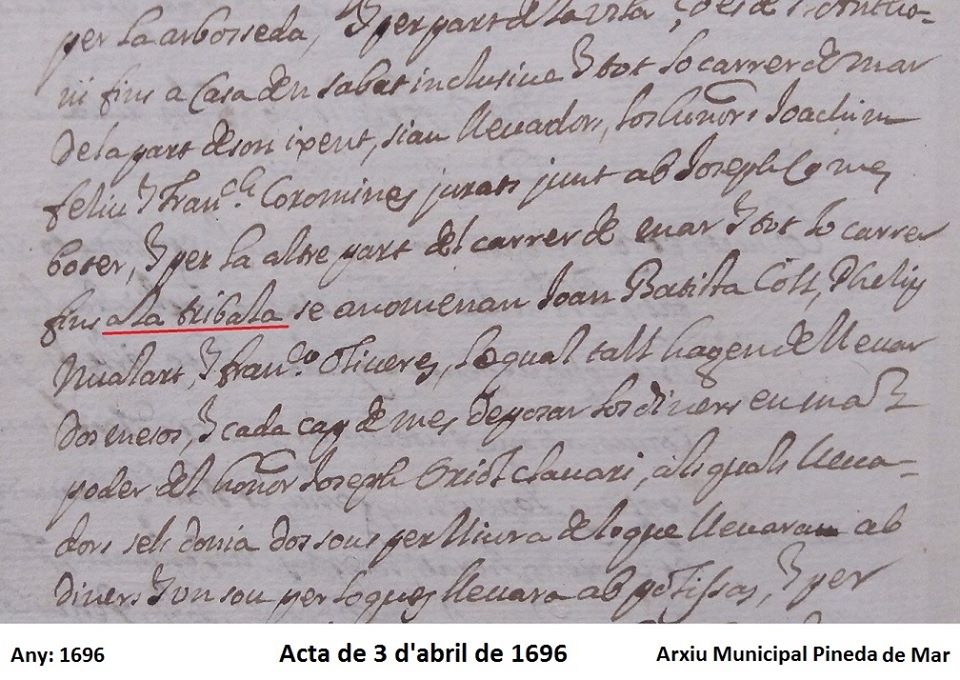 per la arbosseda, y per part de la vila
ui fins a Casa den Sabat inclusive y tot lo carrer de mar
de la part de son ixent, sian llevadors, los honors Joachim
feliu y Fran.ch Coromines jurats junt ab Joseph Comes
boter, y per la altre part del carrer de mar y tot lo carrer
fins a la tribala se anomenan Joan Batista Coll, Phelip
Mualart, y fran.co Oliveres, lo qual tall hagen de llevar
dos mesos, y cada cap de mes deposar los diners en ma y
poder del honor Joseph Oriol clavari, als quals lleva-
dors sels donia dos sous per lliura de loque llevaran ab
diners y un sou per loques llevara ab polissas, y per
Any: 1696
Acta de 3 d'abril de 1696
Arxiu Municipal Pineda de Mar